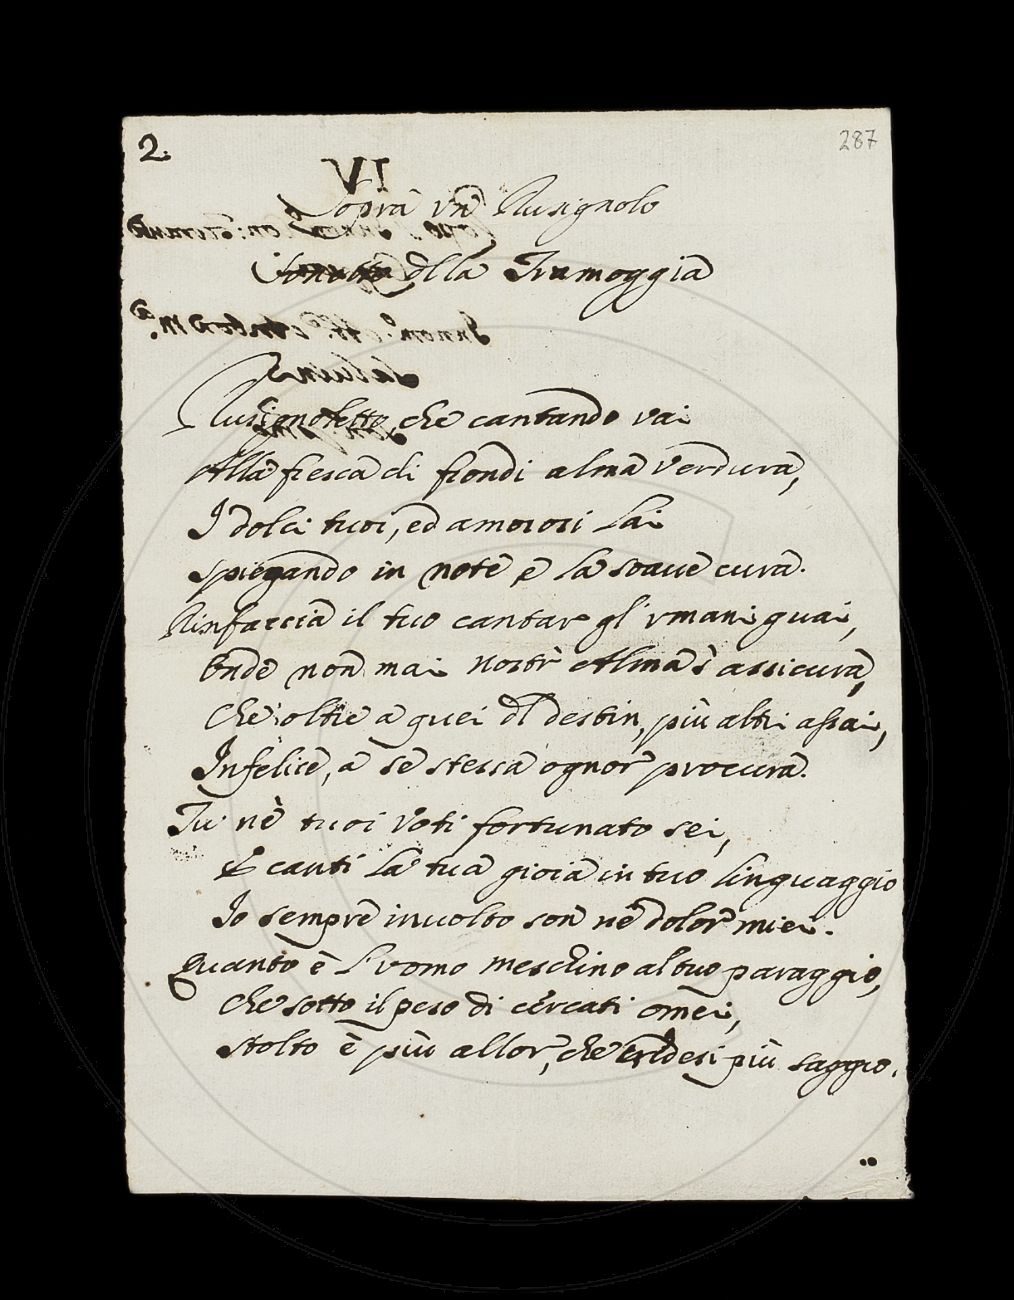 2.
287
IV
Sopra vn Rusignolo
Sonetto della Tramoggia
Rusignoletto, che cantando vai
Alla fresca di frondi alma verdura,
I dolci tuoi, ed amorosi lai
spiegando in note, e la soaue cura.
Rinfaccia il tuo cantar gl' vmani guai,
Onde non mai nostr' Alma s' assicura,
Che oltre a quei del destin, più altri assai,
Infelice, a se stessa ognor procura.
Tu nè tuoi Voti fortunato sei,
E canti la tua gioia in tuo linguaggio
Io sempre inuolto son nè dolor miei.
Quanto è l'vomo meschino al tuo paraggio,
Che sotto il peso di cercati omei,
stolto è più allor, che credesi più saggio.